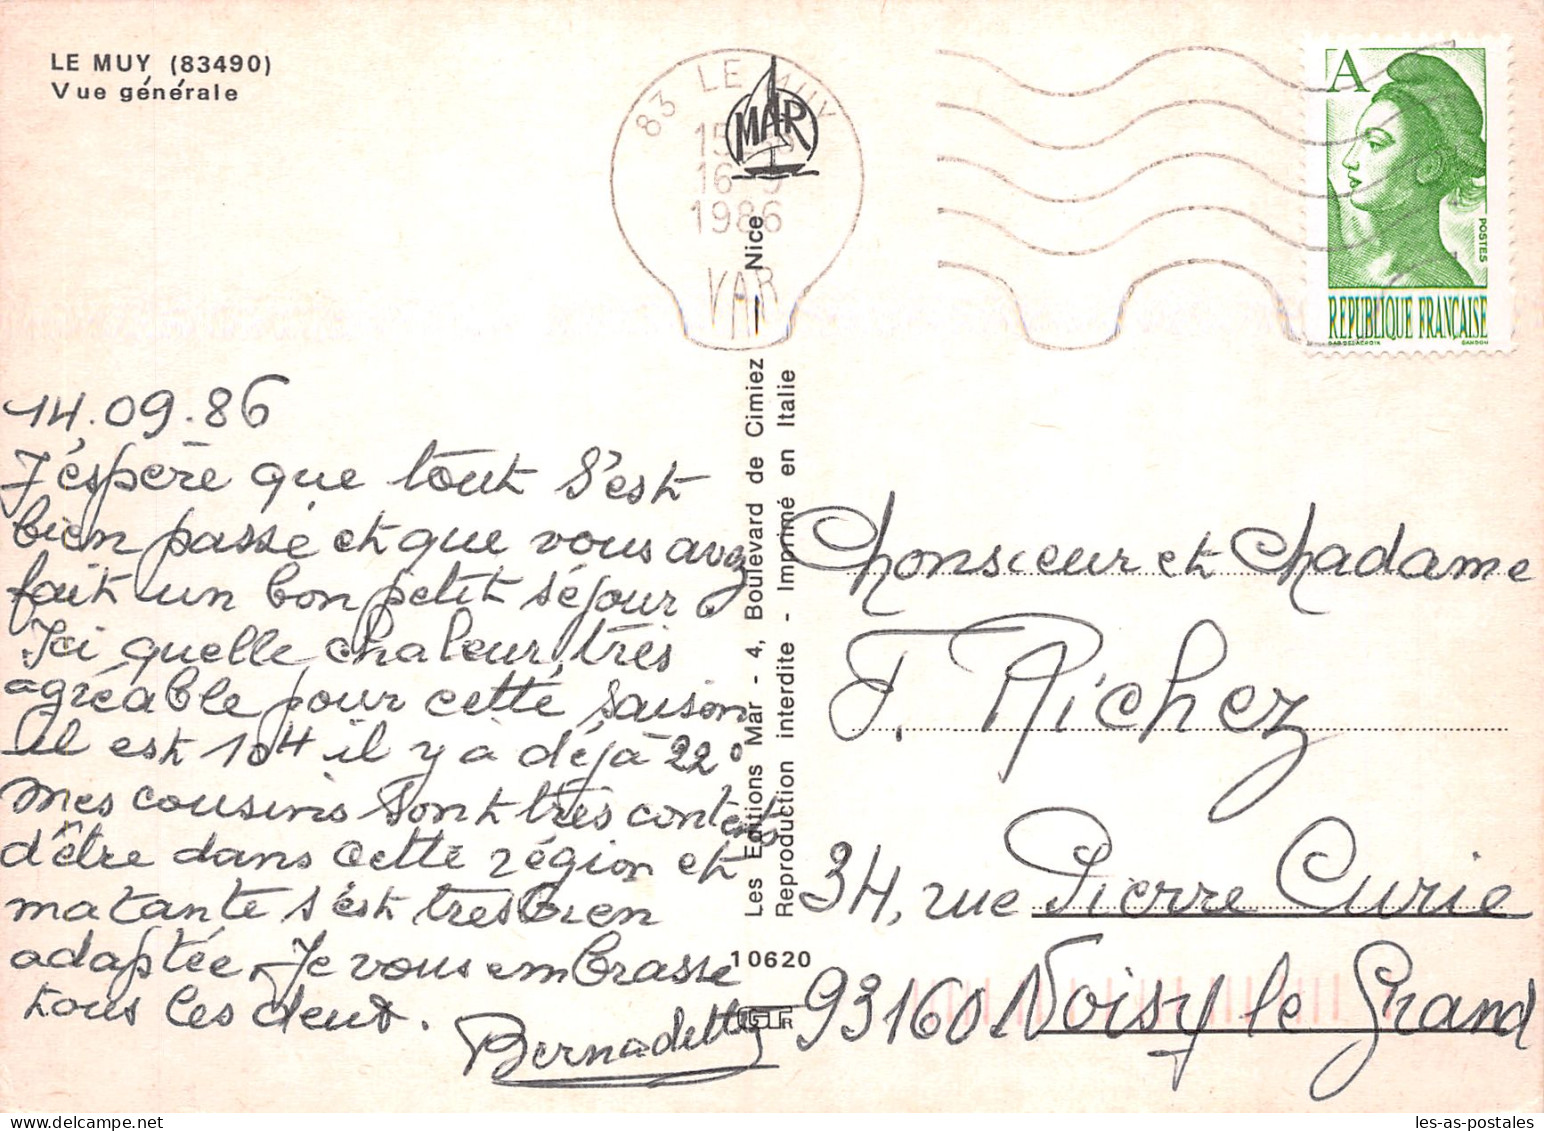 LE MUY (83490)
Vue générale
83 LE MUY
16-9
1986
VAR
MAR
A
POSTES
REPUBLIQUE FRANÇAISE
14.09.86
J'éspère que tout s'est
bien passé et que vous avez
fait un bon petit séjour.
Ici quelle chaleur, très
agréable pour cette saison
il est 10H il y a déjà 22°
mes cousins sont très contents
d'être dans cette région et
ma tante s'est très bien
adaptée. Je vous embrasse
tous les deux.
Bernadette
Les Editions Mar - 4, Boulevard de Cimiez — Nice
Reproduction interdite - Imprimé en Italie
10620
Monsieur et Madame
F. Richez
34, rue Pierre Curie
93160 Noisy le Grand
les-as-postales